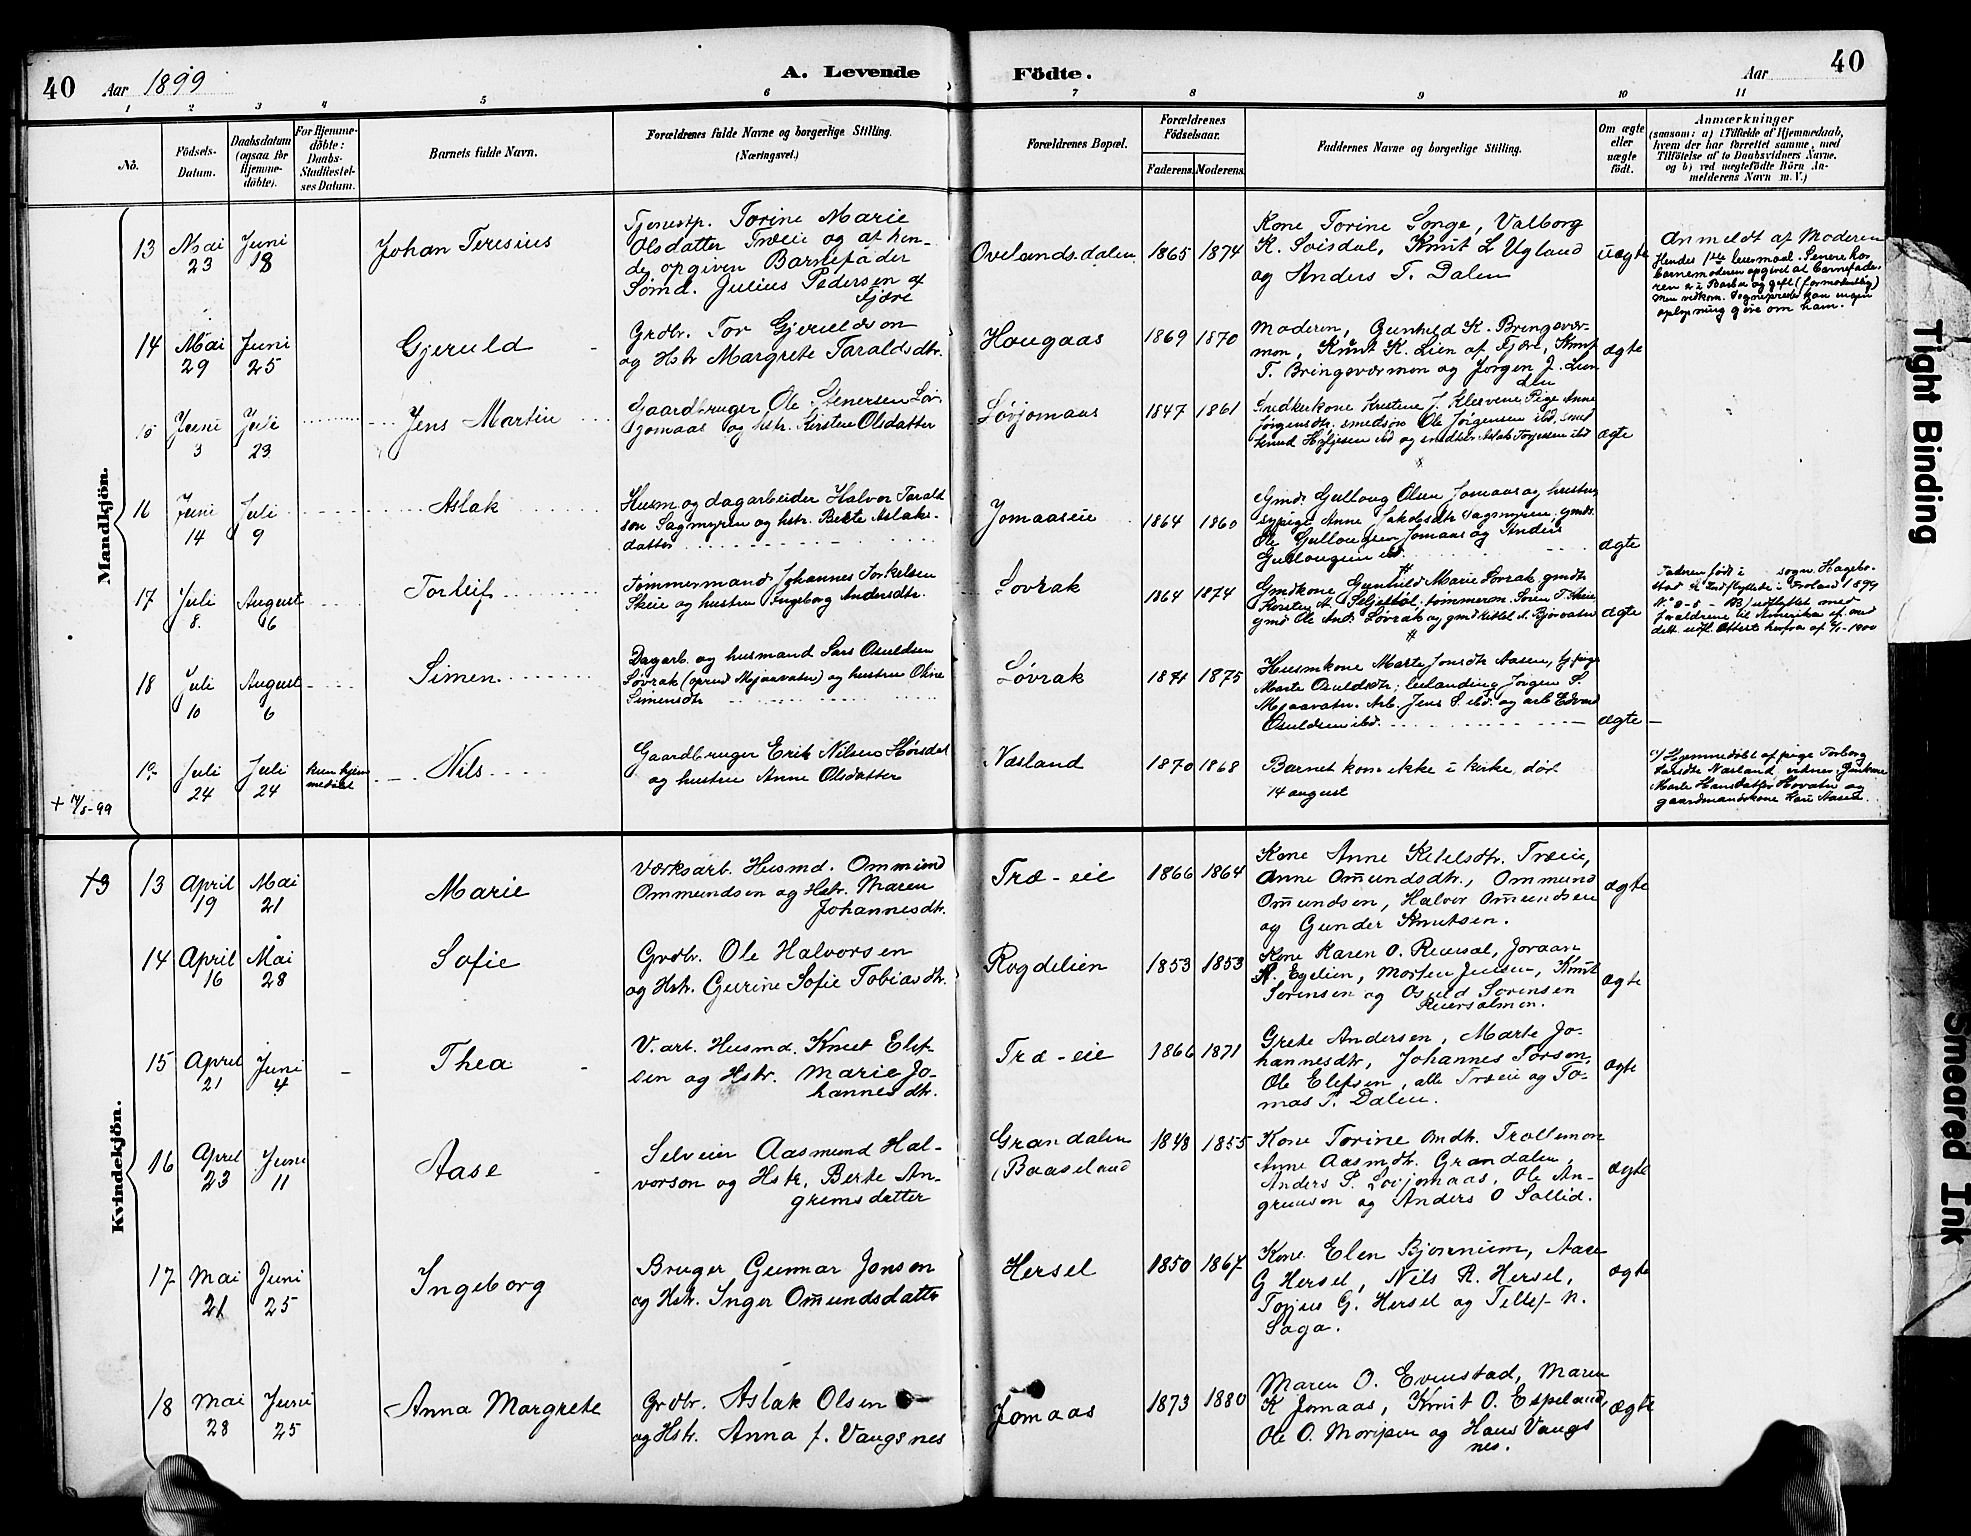 40 Aar 1899 A. Levende Födte. Aar 40
1 2 3 4 5 6 7 8 9 10 11
No. Födsels-Datum. Daabsdatum (ogsaa for Hjemmedöbte). For Hjemmedöbte: Daabs-Stadfæstelses Datum. Barnets fulde Navn. Forældrenes fulde Navne og borgerlige Stilling. (Næringsvei.) Forældrenes Bopæl. Forældrenes Födselsaar. Faderens. Moderens. Faddernes Navne og borgerlige Stilling. Om ægte eller uægte födt. Anmærkninger
(saasom: a) i Tilfælde af Hjemmedaab,
hvem der har forrettet samme, med
Tilföielse af to Daabsvidners Navne,
og b) ved uægtefödte Börn An-
melderens Navn m. V.)
Mandkjön.
13 Mai 23 Juni 18 Johan Teresius
Tjenestp. Torine Marie
Olsdatter Træie og af hen-
de opgiven Barnefader
Sömd. Julius Pedersen af
Fjære
Ovelandsdalen 1865 1874
Kone Torine Songe, Valborg
K. Soisdal, Knut L Ugland
og Anders T. Dalen
uægte
Anmeldt af Moderen
Hendes 1ste leiermaal. Senere har
barnemoderen opgivet at barnefade-
ren er i Barbu og gift (formodentlig)
men vedkom. Sogneprest kan ingen
oplysning give om ham.
14 Mai 29 Juni 25 Gjeruld
Grdbr. Tor Gjeruldson
og Hstr Margrete Taraldsdtr.
Hougaas 1869 1870
Moderen, Gunhild K. Bringsvær-
mon, Knut K. Lien af Fjære, Knut
T. Bringsværmon og Jörgen J. Lien
ægte
15 Juni 3 Juli 23 Jens Martin
Gaardbruger Ole Stenersen Löv-
jomaas og hstr. Kirsten Olsdatter
Lövjomaas 1847 1861
Snedkerkone Kristine J. Klevene, Pige Anne
Jörgensdtr. smedsön Ole Jörgensen ibd, smed
Knud ibd og snedker Aslak Torjussen ibd
ægte
16 Juni 14 Juli 9 Aslak
Husm og dagarbeider Halvor Tarald
sön Sagmyren og hstr. Berte Aslaks-
datter
Jomaaseie 1864 1860
Gmd. Gulloug Olsen Jomaas og hustru
sypige Anne Jakobsdtr Sagmyren, gmds.
Ole Gullougsen Jomaas og Anders
Gullougsen ibd.
ægte
17 Juli 8 August 6 Torleif
Tömmermand Johannes Torkelsen
Skeie og hustru Ingeborg Andersdtr.
Lovrak 1864 1874
Gmdkone Gunhild Marie Lovrak, gmdtr
Kirsten A. tömmerm. Sören T. Skeie
gmd Ole And. Lövrak og gmd Kittel A. Bjorvatn
ægte
Faderen født i sogn Hægebo-
stad er indflyttet i Froland 1899
No 2-5 - B) udflyttet med
forældrene til Amerika if. med
delt udfl. Attest herfra af 1900
18 Juli 10 August 6 Simen
Dagarb. og husmand Lars Osuldsen
Lövrak (oprind Mjaavatn) og hustru Oline
Simensdtr
Lövrak 1871 1875
Husmkone Marte Jonsdtr Aasen, tj.pige
Marte Osuldsdtr; Jörgen S.
Mjaavatn. Arb. Jens S. ibd. og arb Edvard
Osuldsen ibd.
ægte
19 + 14/8-99 Juli 24 Juli 24 Kun hjem
medöbt Nils
Gaardbruger Erik Nilsen Hörsdal
og hustru Anne Olsdatter
Næsland 1870 1868
Barnet kom ikke i kirke, död
14 august
Hjemmedöbt af pige Torborg
Larsdtr Næsland, vidner:
Marte Hansdatter Hovatn og
gaardmandskone Kari Aasen.
Kvindekjön.
+3 13 April 19 Mai 21 Marie
Værksarb. Husmd. Ommund
Ommundsen og Hstr. Maren
Johannesdtr.
Træ-eie 1866 1864
Kone Anne Ketelsdtr. Træie,
Anne Om̄undsdtr., Ommund
Om̄undsen, Halvor Om̄undsen
og Gunder Knutsen.
ægte
14 April 16 Mai 28 Sofie
Grdbr. Ole Halvorsen
og Hstr. Gurine Sofie Tobiasdtr.
Rogdelien 1853 1853
Kone Karen O. Reiersöl, Joraan
R. Egelien, Morten Jensen, Knut
Sörensen og Osuld Sörensen
Reiersölmon.
ægte
15 April 21 Juni 4 - Thea -
V. arb. Husmd. Knut Elef-
sen og Hstr. Marie Jo-
hannesdtr.
Træ-eie 1866 1871
Grete Andersen, Marte Jo-
hannesdtr, Johannes Torson,
Ole Elefsen, alle Træie og To-
mas T. Dalen.
ægte
16 April 23 Juni 11 Aase -
Selveier Aasmund Hal-
vorson og Hstr. Berte An-
gremsdatter
Grandalen
(Baaseland 1848 1855
Kone Torine Omdtr. Trollemon
Anne Aasmdtr. Grandalen,
Anders P. Lovjomaas, Ole An-
grumson og Anders O Sollid.
ægte
17 Mai 21 Juni 25 Ingeborg
Bruger Gunnar Jonson
og Hstr. Inger Om̄undsdatter
Hersel 1850 1867
Kone Elen Bjornum, Aase
G Hersel, Nils R. Hersel,
Tojus G. Hersel og Tellef N.
Saga.
ægte
18 Mai 28 Juni 25 Anna Margrete
Grdbr. Aslak Olsen
og Hstr. Anna f. Vaagsnes
Jomaas 1873 1880
Maren O. Evenstad, Maren
K Jomaas, Knut O. Espeland,
Ole O. og Hans Vaags
nes.
ægte
Tight Binding
Smeared Ink